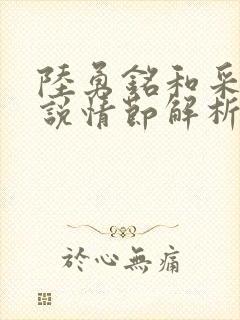 陸勇銘和采
說情節解析
於心無痛